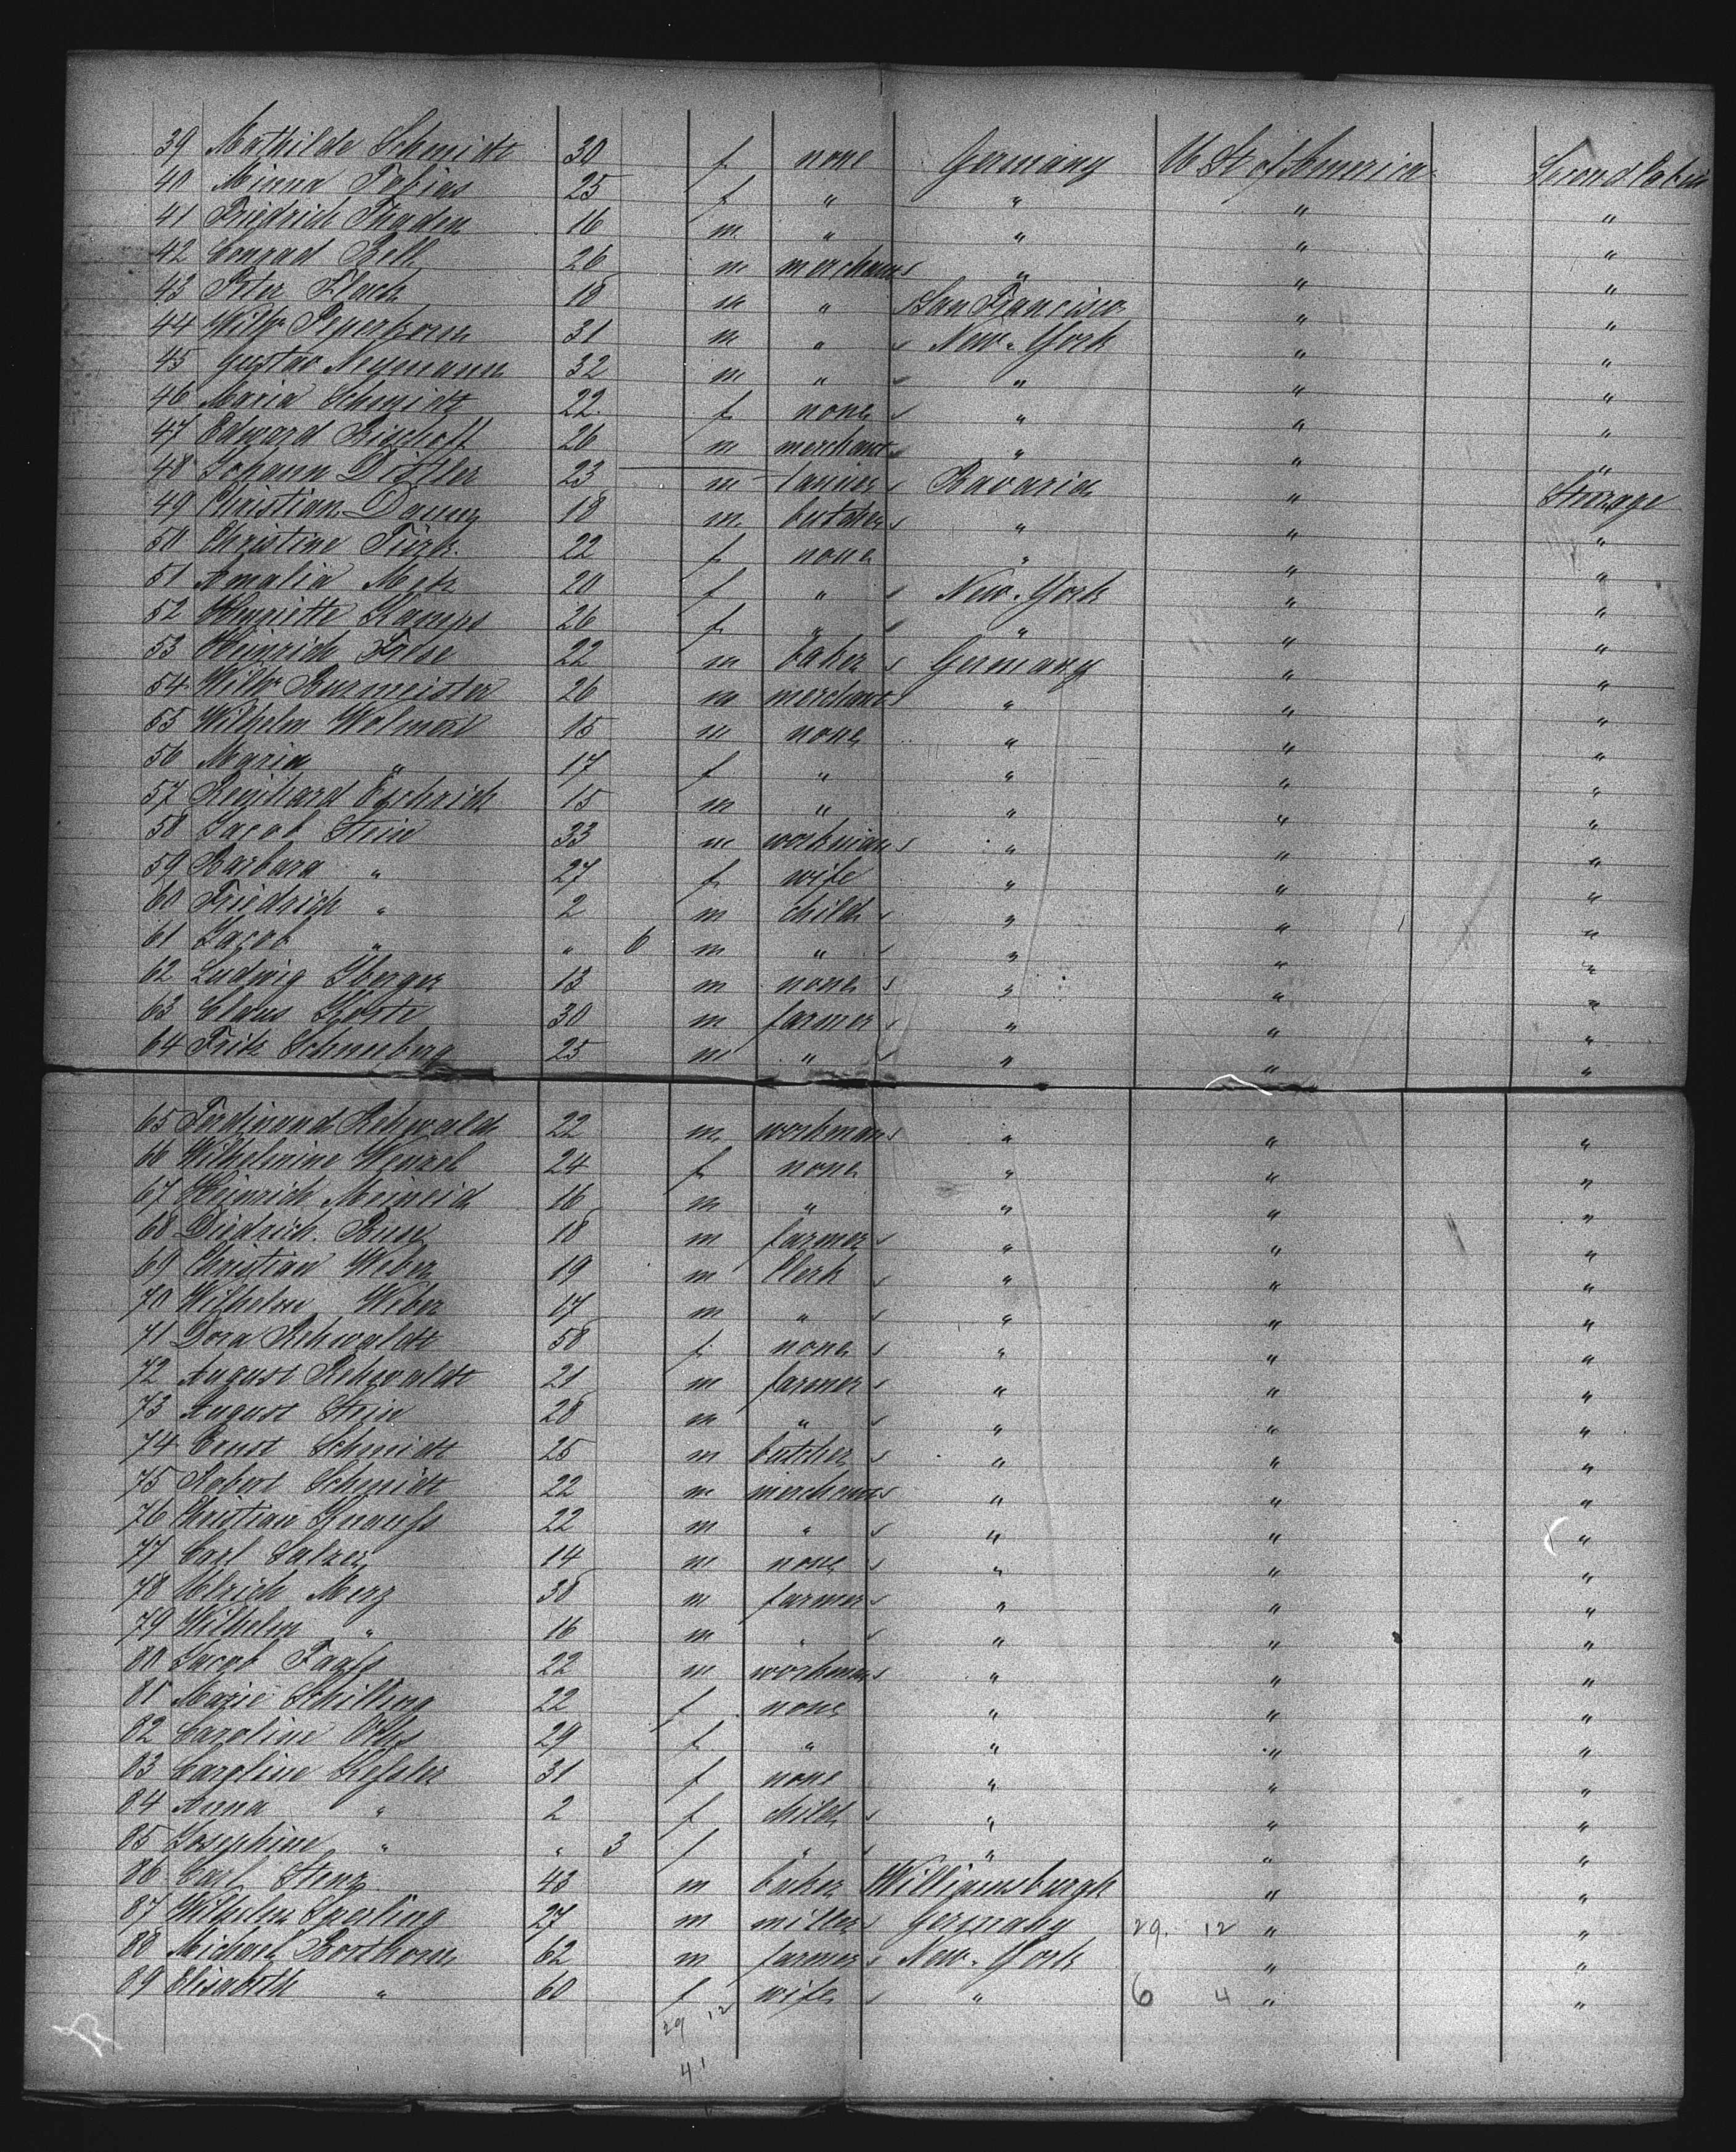 39 Mathilde Schmidt 30 f none Germany U. St. of America Second Cabin
40 Minna Tobias 25 f " " " "
41 Friedrich Thaden 16 m " " " "
42 Conrad Bell 26 m merchant " " "
43 Peter Flach 18 m " San Francisco " "
44 Wilh. Peperkorn 31 m " New-York " "
45 Gustav Neymann 32 m " " " "
46 Maria Schmidt 22 f none " " "
47 Edward Bischoff 26 m merchant " " "
48 Johann Distler 23 m tanner Bavaria " Steerage
49 Christian 18 m butcher " " "
50 Christine Türk 22 f none " " "
51 Amalia Metz 20 f " New-York " "
52 Henriette Kamps 26 f " " " "
53 Heinrich Frese 22 m baker Germany " "
54 Wilh. Burmeister 26 m merchant " " "
55 Wilhelm Wolmar 15 m none " " "
56 Maria " 17 f " " " "
57 Reinhard Eschrich 15 m " " " "
58 Jacob Stein 33 m workman " " "
59 Barbara " 27 f wife " " "
60 Friedrich " 2 m child " " "
61 Jacob " " 6 m " " " "
62 Ludwig Yberger 13 m none " " "
63 Claus 30 m farmer " " "
64 Fritz Schneeberg 25 m " " " "
65 Ferdinand Rehwald 22 m workman " " "
66 Wilhelmine Wenzel 24 f none " " "
67 Heinrich Meineid 16 m " " " "
68 Diedrich Buse 18 m farmer " " "
69 Christian Weber 19 m Clerk " " "
70 Wilhelm Weber 17 m " " " "
71 Dora Rehwaldt 58 f none " " "
72 August Rehwaldt 21 m farmer " " "
73 August Stein 28 m " " " "
74 Ernst Schmidt 25 m butcher " " "
75 Robert Schmidt 22 m merchant " " "
76 Christian Knauss 22 m " " " "
77 Carl Salzer 14 m none " " "
78 Ulrich Merz 38 m farmer " " "
79 Wilhelm " 16 m " " " "
80 Jacob 22 m workman " " "
81 Marie Schilling 22 f none " " "
82 Caroline 29 f " " " "
83 Caroline Kessler 31 f none " " "
84 Anna " 2 f child " " "
85 Josephine " " 3 f " " " "
86 Carl Stenz 43 m baker Williamsburgh " "
87 Wilhelm Sperling 27 m miller Germany 29. 12 " "
88 Michael 62 m farmer New-York " "
89 Elisabeth " 60 f wife " 6 4 " "
29 12
41